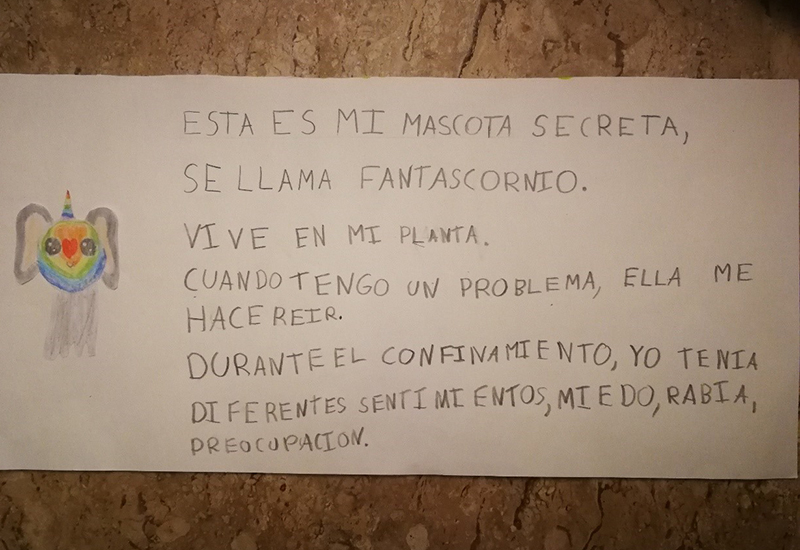 ESTA ES MI MASCOTA SECRETA,
SE LLAMA FANTASCORNIO.
VIVE EN MI PLANTA.
CUANDO TENGO UN PROBLEMA, ELLA ME
HACE REIR.
DURANTE EL CONFINAMIENTO, YO TENIA
DIFERENTES SENTIMIENTOS, MIEDO, RABIA,
PREOCUPACION.